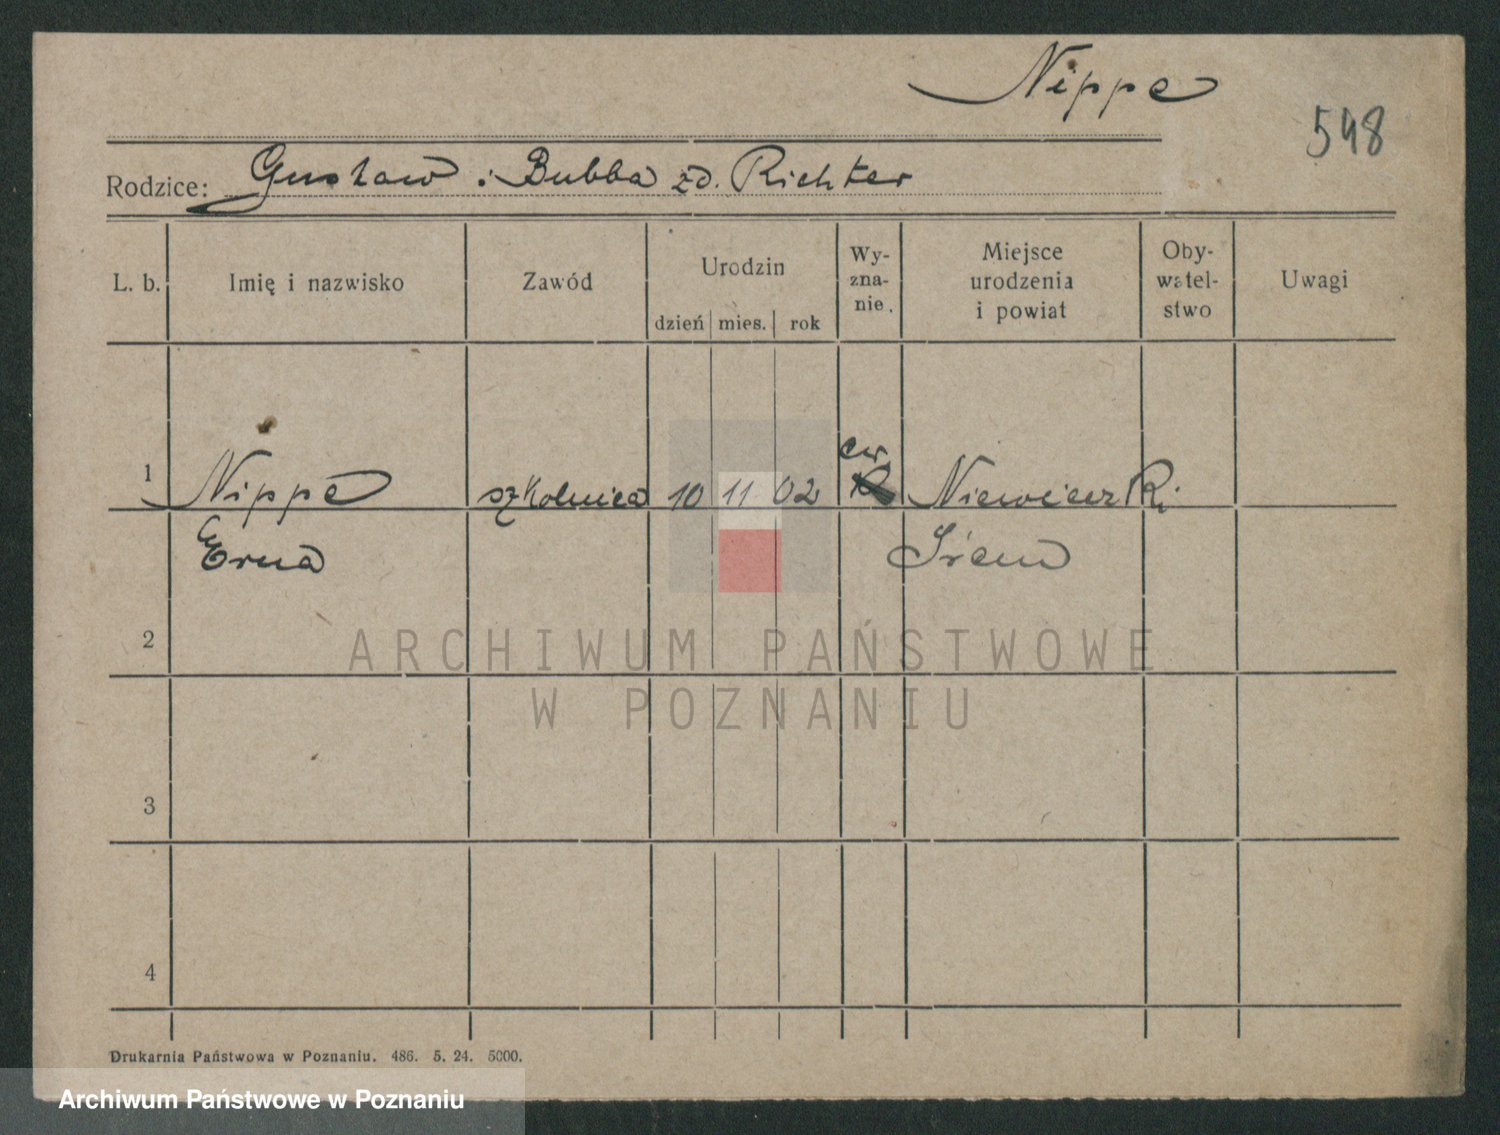 Nippe
548
Rodzice: Gustaw i Bubba zd. Richter
L. b. Imię i nazwisko Zawód Urodzin dzień mies. rok Wy- zna- nie. Miejsce urodzenia i powiat Oby- watel- stwo Uwagi
1 Nippe szkolnica 10 11 02 ew
Erna Śrem
2
ARCHIWUM PAŃSTWOWE
W POZNANIU
3
4
Drukarnia Państwowa w Poznaniu. 486. 5. 24. 5000.
Archiwum Państwowe w Poznaniu